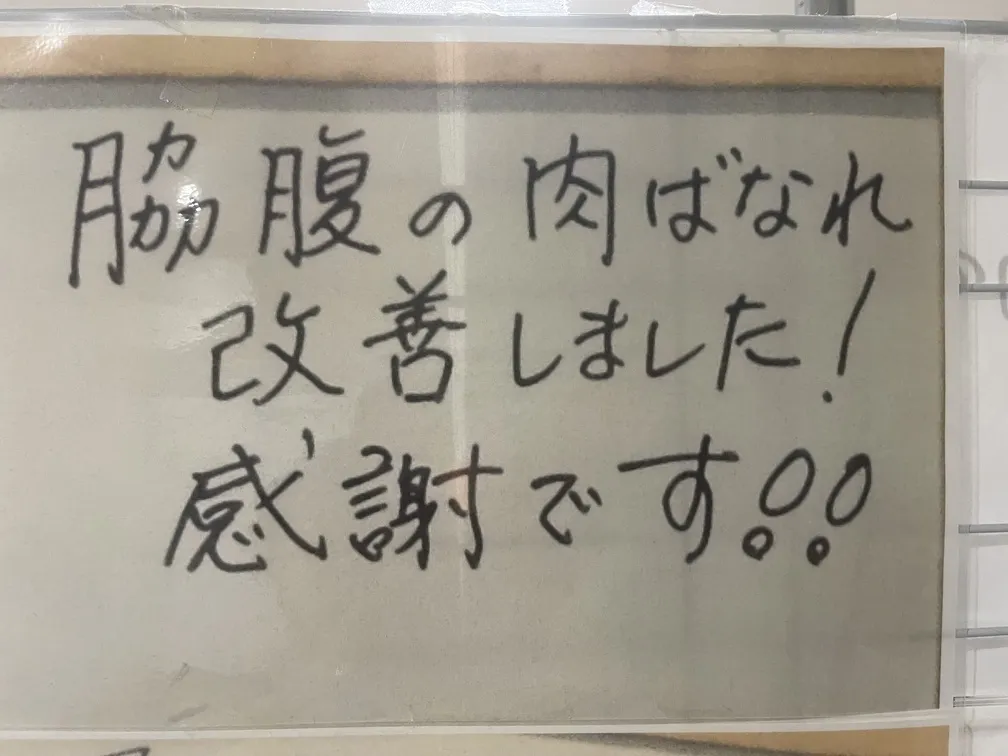 脇腹の肉ばなれ
改善しました!
感謝です!!